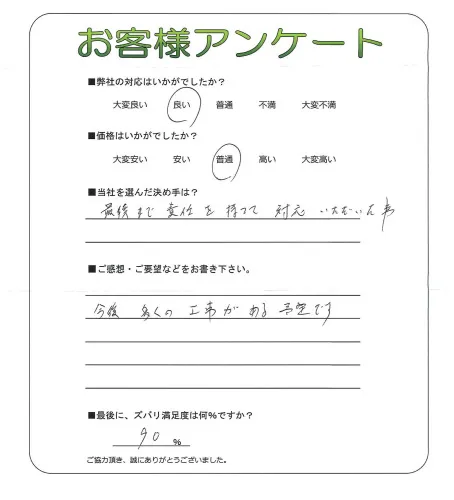 お客様アンケート
■弊社の対応はいかがでしたか？
大変良い 良い 普通 不満 大変不満
■価格はいかがでしたか？
大変安い 安い 普通 高い 大変高い
■当社を選んだ決め手は？
最後まで 責任を持って 対応 いただいた事
■ご感想・ご要望などをお書き下さい。
今後 多くの 工事が ある 予定です
■最後に、ズバリ満足度は何%ですか？
90 %
ご協力頂き、誠にありがとうございました。